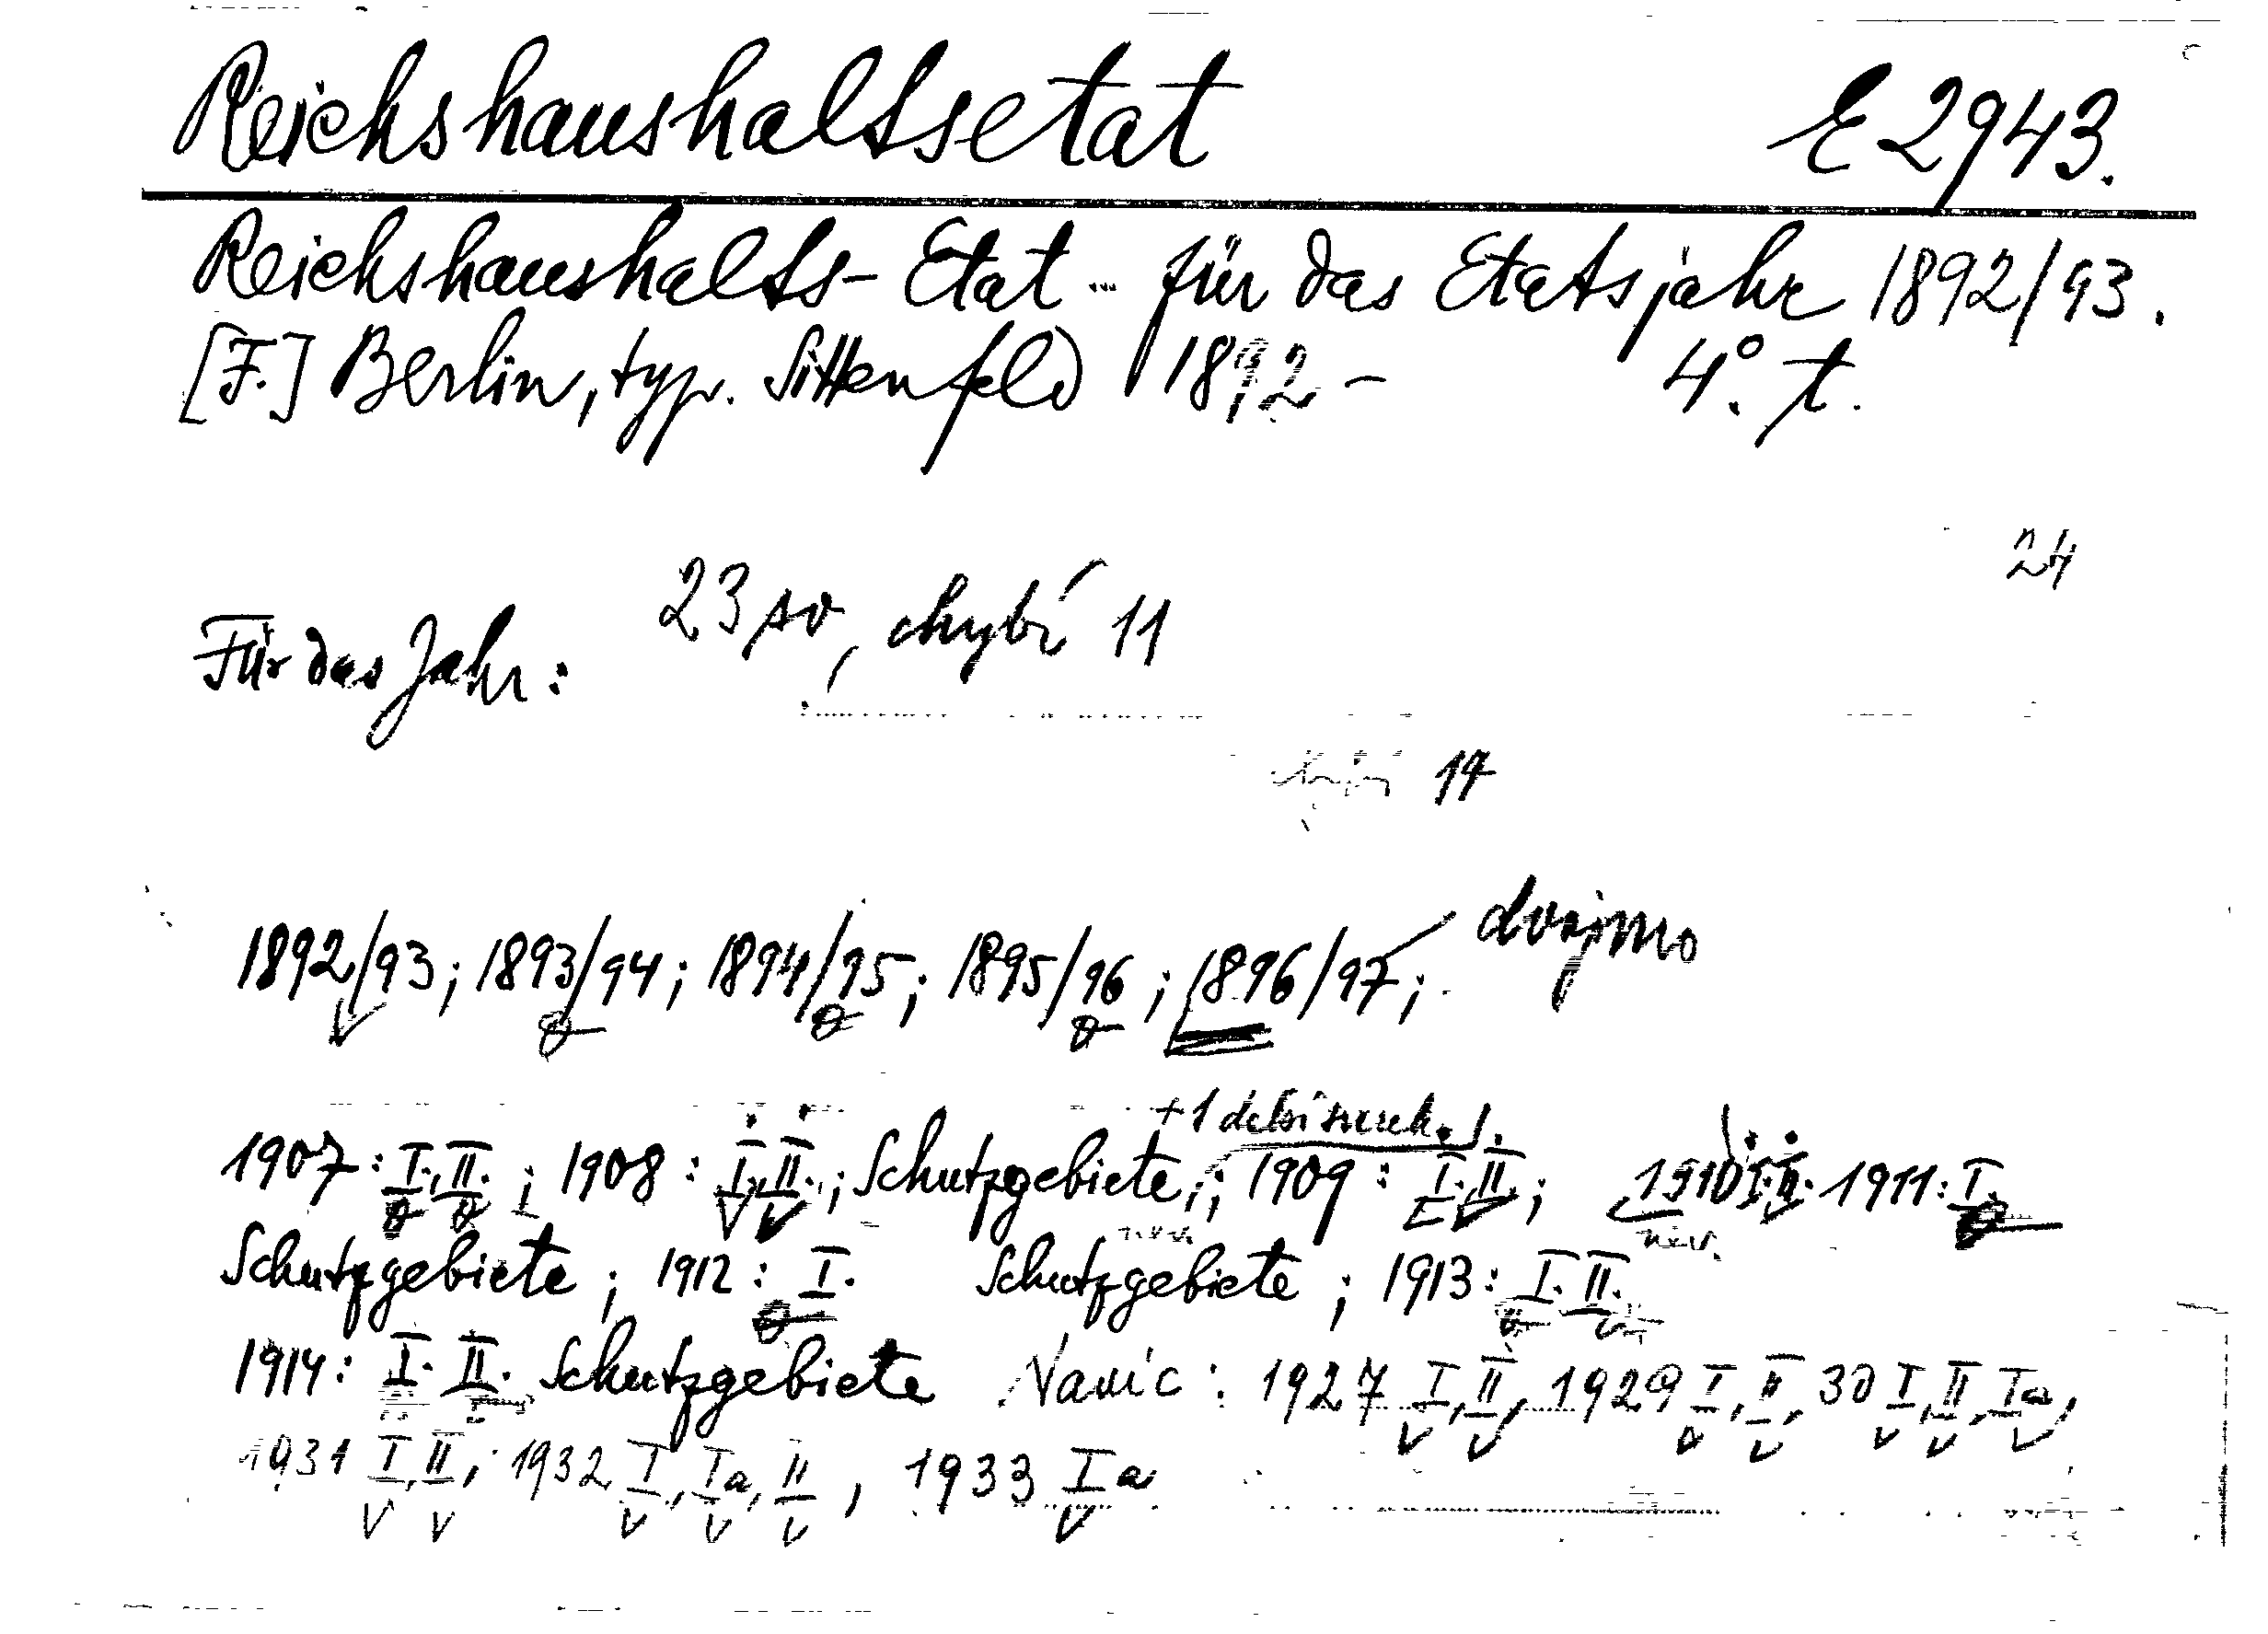 Reichshaushaltsetat E 2943.
Reichshaushalts-Etat ... für das Etatsjahr 1892/93.
[F.] Berlin, typ. Sittenfeld 1892 - 4°. t.
24
23 sv, chybí 11
Für das Jahr:
chybí 17
dvojmo
1892/93; 1893/94; 1894/95; 1895/96; 1896/97;
+1
1907: I., II.; 1908: I., II.; Schutzgebiete; 1909: I. II.; 1910 I. II. 1911: I.
Schutzgebiete; 1912: I. Schutzgebiete; 1913: I. II.
1914: I. II. Schutzgebiete Navíc: 1927 I, II, 1929 I, II, 30 I, II, Ia,
1931 I, II; 1932 I, Ia, II, 1933 Ia